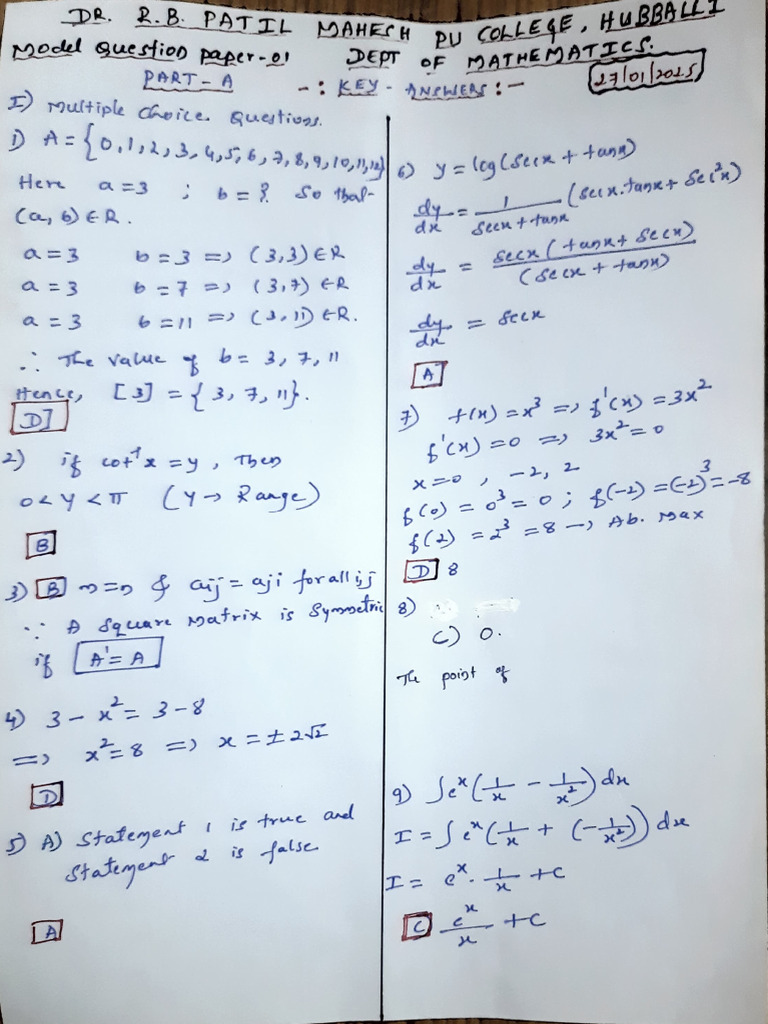 DR. R.B. PATIL MAHESH PU COLLEGE, HUBBALLI
Model Question paper-01 DEPT OF MATHEMATICS.
PART-A -: KEY-ANSWERS:- 27/01/2025
I) Multiple choice Questions.
1) A = {0,1,2,3,4,5,6,7,8,9,10,11,12}
Here a=3 ; b=? So that
(a, b) ∈ R.
a=3 b=3 => (3,3) ∈ R
a=3 b=7 => (3,7) ∈ R
a=3 b=11 => (3,11) ∈ R.
∴ The value of b= 3, 7, 11
Hence, [3] = {3, 7, 11}.
D]
2) if cot⁻¹x = y, Then
0<y<π (y→ Range)
B
3) B m=n & aij = aji for all i,j
∵ A Square Matrix is Symmetric
if A' = A
4) 3 - x² = 3-8
=> x²=8 => x = ±2√2
D
5) A) Statement 1 is true and
Statement 2 is false
A
6) y = log(secx + tanx)
dy/dx = 1/(secx + tanx) (secx.tanx + sec²x)
dy/dx = secx(tanx + secx)/(secx + tanx)
dy/dx = secx
A
7) f(x) = x³ => f'(x) = 3x²
f'(x) = 0 => 3x² = 0
x=0, -2, 2
f(0) = 0³ = 0 ; f(-2) = (-2)³ = -8
f(2) = 2³ = 8 → Ab. Max
D 8
8)
C) 0.
The point of
9) ∫eˣ(1/x - 1/x²) dx
I = ∫eˣ(1/x + (-1/x²)) dx
I = eˣ. 1/x + C
C eˣ/x + C